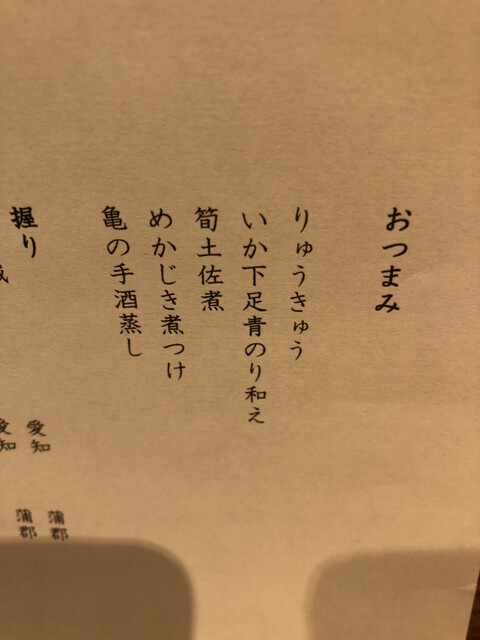 おつまみ
りゅうきゅう
いか下足青のり和え
筍土佐煮
めかじき煮つけ
亀の手酒蒸し
握り
愛知 蒲郡
愛知 蒲郡